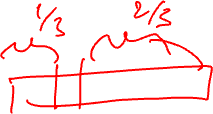 1/3 2/3